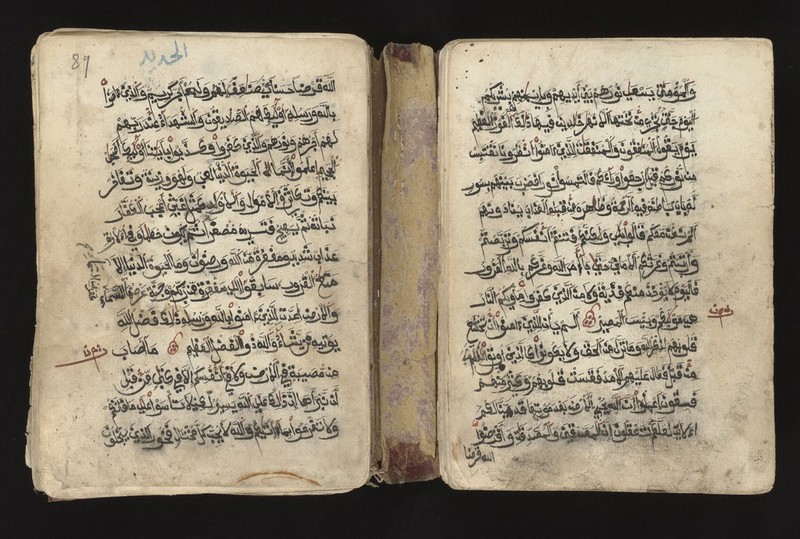 والمؤمنت يسعى نورهم بين ايديهم وبايمنهم بشريكم
اليوم جنت تجري من تحتها الانهر خلدين فيها ذلك الفوز العظيم
يوم يقول المنفقون والمنفقت للذين امنوا انظرونا نقتبس
من نوركم قيل ارجعوا وراءكم فالتمسوا نورا فضرب بينهم بسور
له باب باطنه فيه الرحمة وظاهره من قبله العذاب ينادونهم
الم نكن معكم قالوا بلى ولكنكم فتنتم انفسكم وتربصتم
وارتبتم وغرتكم الاماني حتى جاء امر الله وغركم بالله الغرور
فاليوم لا يؤخذ منكم فدية ولا من الذين كفروا ماويكم النار
هي موليكم وبيس المصير الم يان للذين امنوا ان تخشع
قلوبهم لذكر الله وما نزل من الحق ولا يكونوا كالذين اوتوا الكتب
من قبل فطال عليهم الامد فقست قلوبهم وكثير منهم
فسقون اعلموا ان الله يحي الارض بعد موتها قد بينا لكم
الايت لعلكم تعقلون ان المصدقين والمصدقت واقرضوا
الله قرضا
87
الحديد
الله قرضا حسنا يضاعف لهم ولهم اجر كريم والذين امنوا
بالله ورسله اوليك هم الصديقون والشهداء عند ربهم
لهم اجرهم ونورهم والذين كفروا وكذبوا بايتنا اوليك اصحب
الجحيم اعلموا انما الحيوة الدنيا لعب ولهو وزينة وتفاخر
بينكم وتكاثر في الامول والاولد كمثل غيث اعجب الكفار
نباته ثم يهيج فتريه مصفرا ثم يكون حطما وفي الاخرة
عذاب شديد ومغفرة من الله ورضون وما الحيوة الدنيا الا
متع الغرور سابقوا الى مغفرة من ربكم وجنة عرضها كعرض السماء
والارض اعدت للذين امنوا بالله ورسله ذلك فضل الله
يوتيه من يشاء والله ذو الفضل العظيم ما اصاب
من مصيبة في الارض ولا في انفسكم الا في كتب من قبل
ان نبراها ان ذلك على الله يسير لكيلا تاسوا على ما فاتكم
ولا تفرحوا بما اتيكم والله لا يحب كل مختال فخور الذين يبخلون